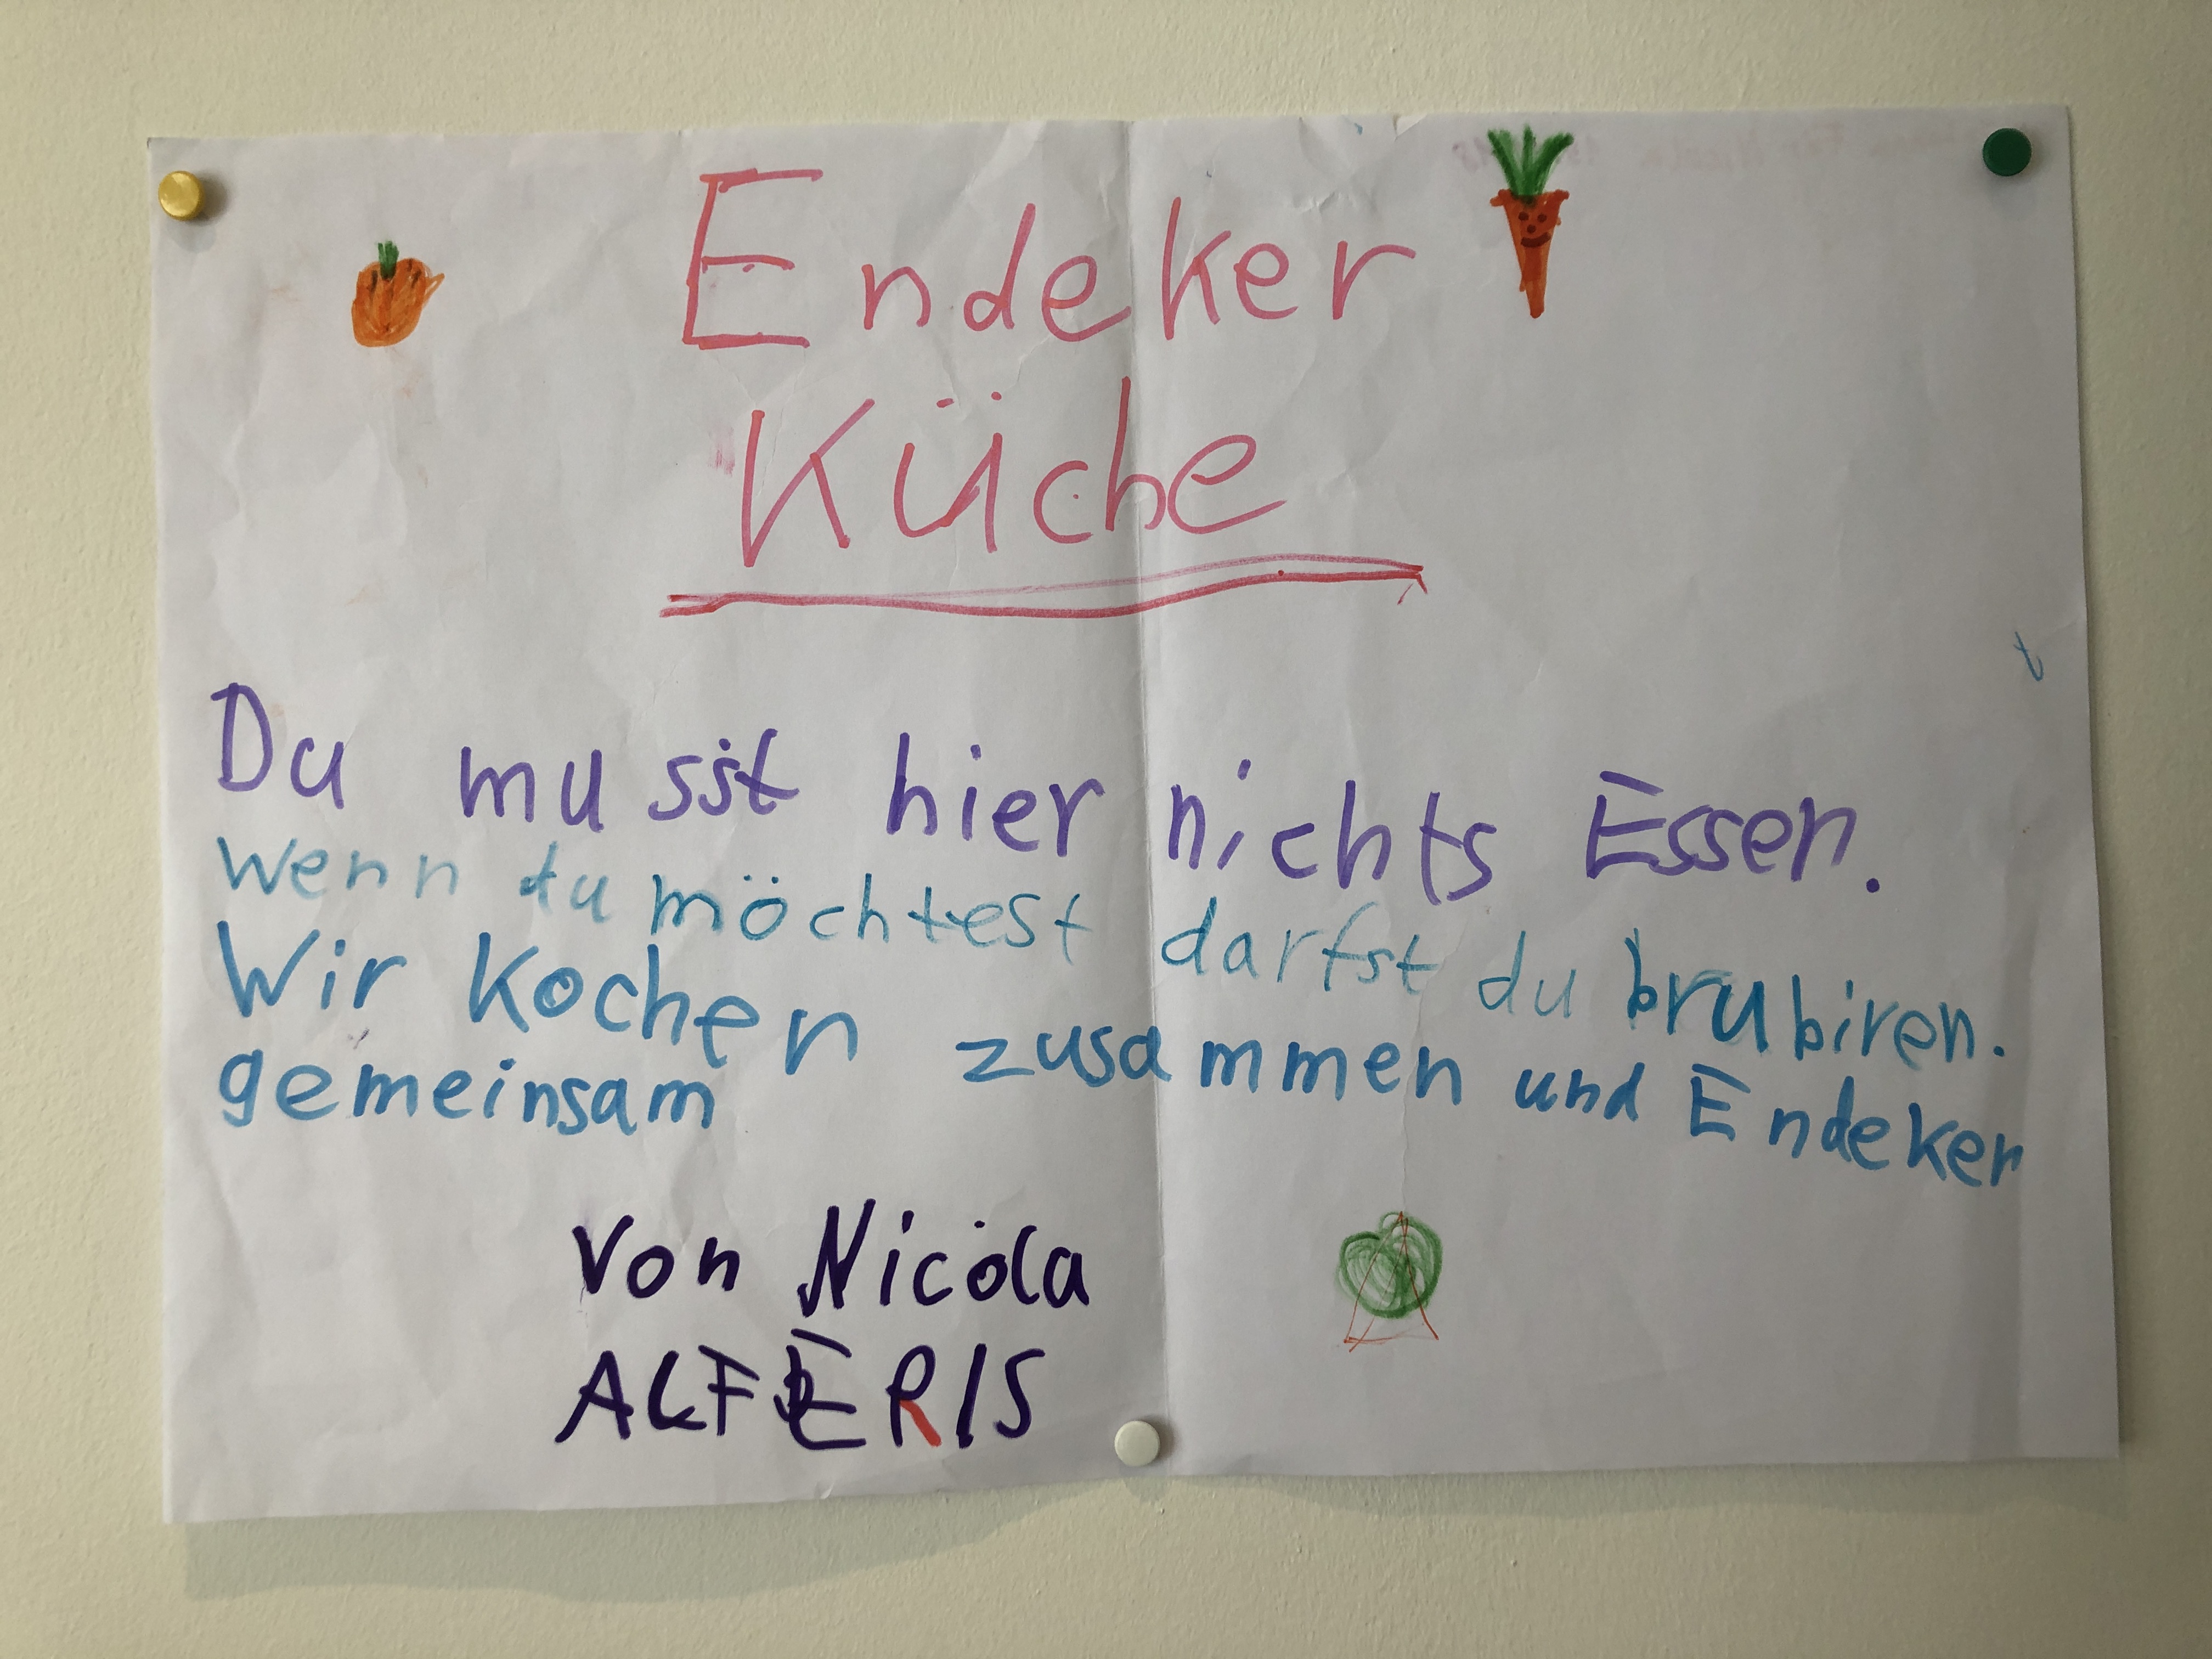 Endeker
Küche
Du musst hier nichts Essen.
Wenn du möchtest darfst du brubiren.
Wir Kochen zusammen und Endeker
gemeinsam
Von Nicola
ALFERIS